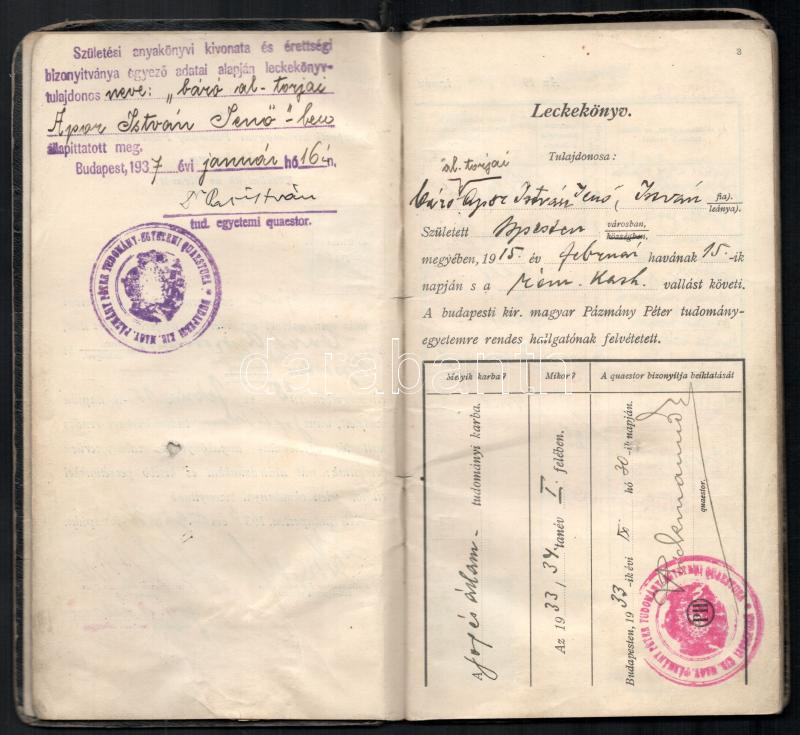 Születési anyakönyvi kivonata és érettségi
bizonyitványa egyező adatai alapján leckekönyv-
tulajdonos neve: "báró al-torjai
Apor István Jenő"-ben
állapittatott meg.
Budapest, 1937 évi január hó 16 én.
Dr István
tud. egyetemi quaestor.
BUDAPESTI KIR. MAGY. PÁZMÁNY PÉTER TUDOMÁNY-EGYETEMI QUAESTURA
3
Leckekönyv.
al-torjai
Tulajdonosa:
báró Apor István Jenő, István fia).
leánya).
Született Bpesten városban,
községben,
megyében, 1915. év február havának 15.-ik
napján s a róm. kath. vallást követi.
A budapesti kir. magyar Pázmány Péter tudomány-
egyetemre rendes hallgatónak felvétetett.
Melyik karba?
Mikor?
A quaestor bizonyítja beiktatását
A jog és állam- tudományi karba.
Az 1933/34. tanév I. felében.
Budapesten, 1933-ik évi IX hó 30-ik napján.
quaestor.
BUDAPESTI KIR. MAGY. PÁZMÁNY PÉTER TUDOMÁNY-EGYETEMI QUAESTURA
PH
darabanth